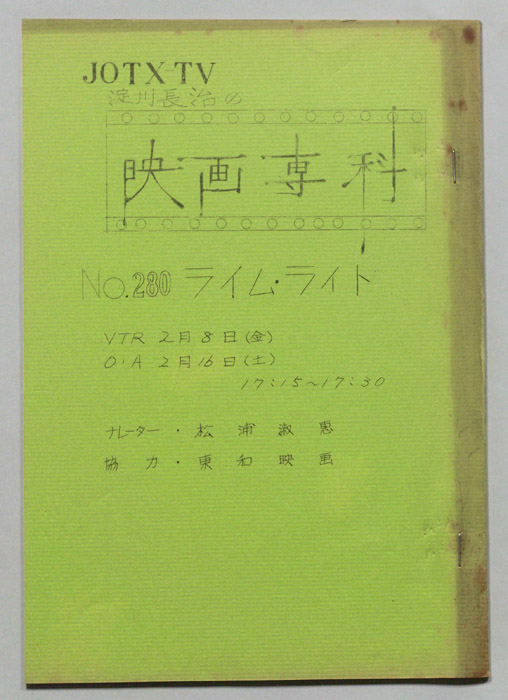 JOTX-TV
淀川長治の
映画専科
No.280 ライム・ライト
VTR 2月8日(金)
O・A 2月16日(土)
17:15~17:30
ナレーター・松浦淑恵
協力・東和映画